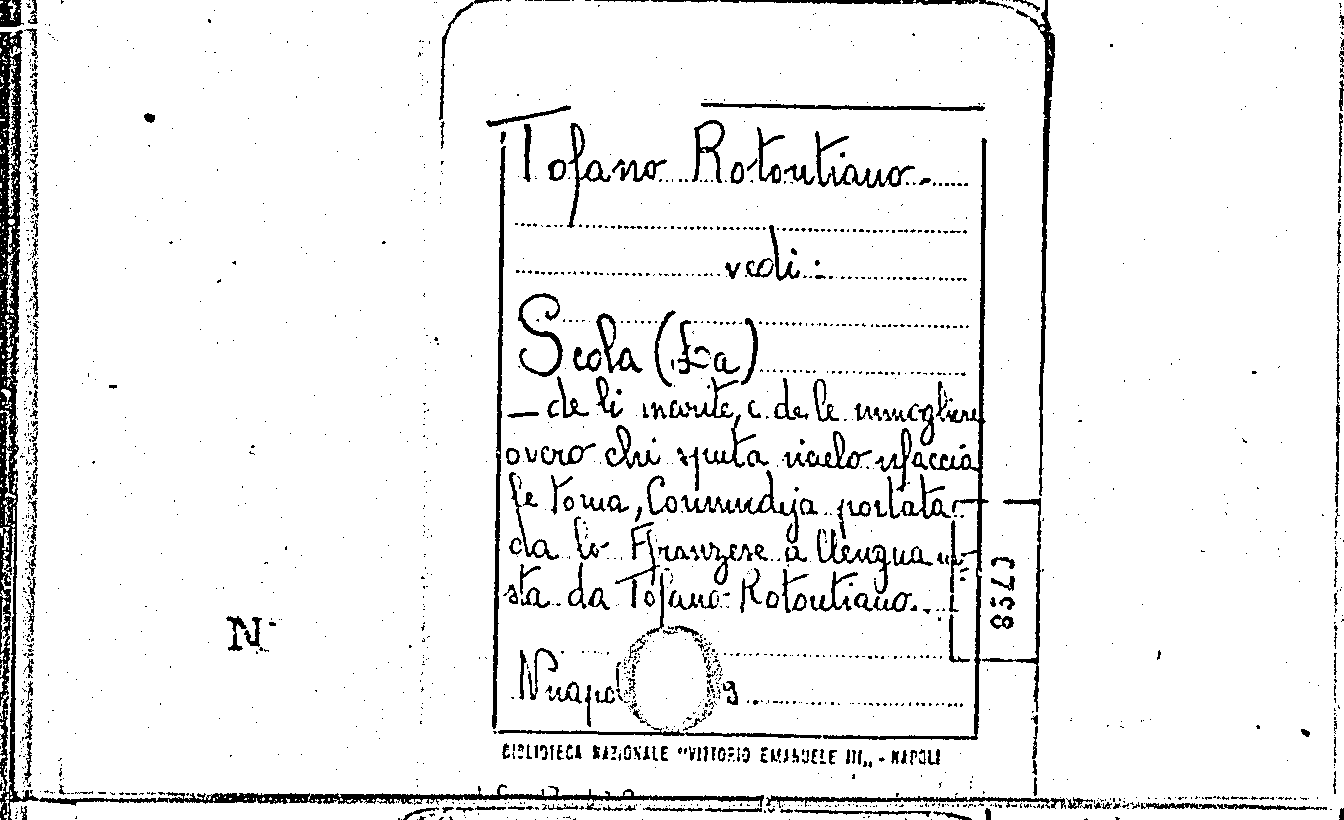 Tofano Rotontiano.
vedi:
Scola (La)
— de li marite, e de le mmogliere
overo chi sputa ncielo nfaccia
le torna, Commedeja portata
da lo Franzese a llengua no-
sta da Tofano Rotontiano.
8573
N
BIBLIOTECA NAZIONALE "VITTORIO EMANUELE III" - NAPOLI